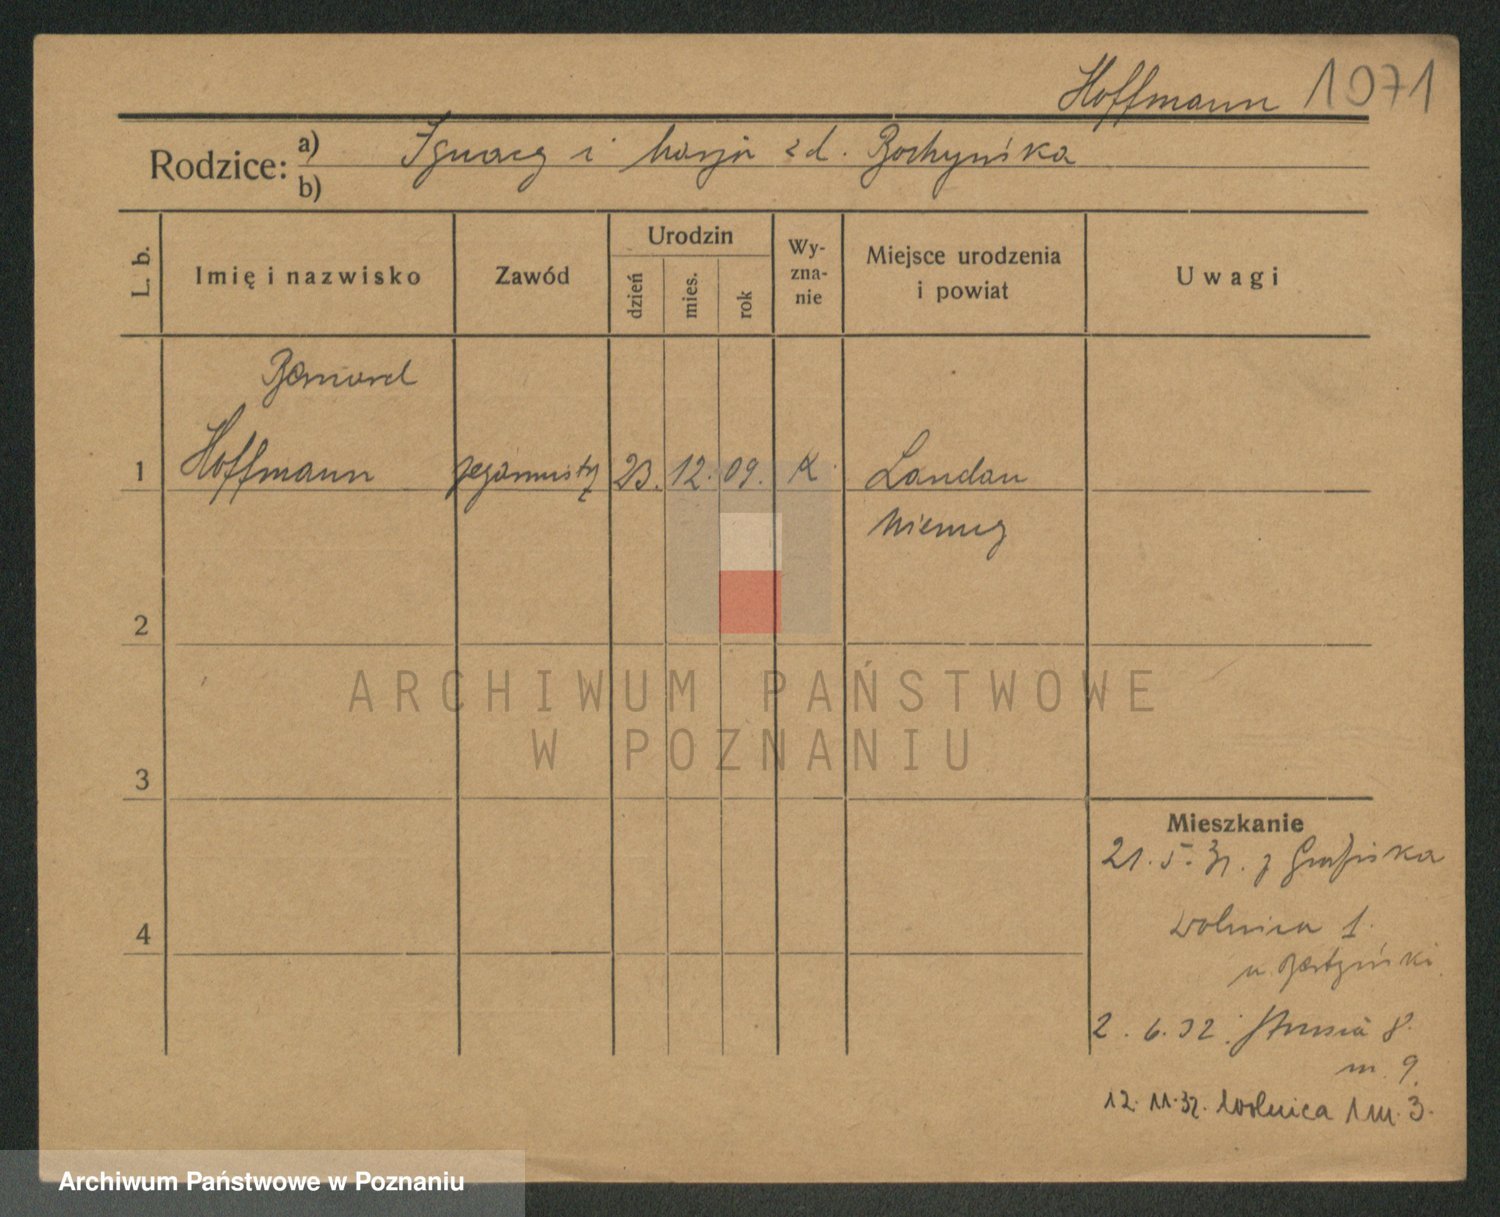 Hoffmann 1071
Rodzice: a) Ignacy i Marja z d.
b)
L. b.
Imię i nazwisko
Zawód
Urodzin
dzień
mies.
rok
Wy-
zna-
nie
Miejsce urodzenia
i powiat
Uwagi
Bernard
1 Hoffmann 23. 12. 09. K. Landau
Niemcy
2
ARCHIWUM PAŃSTWOWE
W POZNANIU
3
Mieszkanie
21. 5. 31. z
4
Wolnica 1.
u
2. 6. 32. Strusia 8.
m. 9.
12. 11. 32. Wolnica 1 m. 3.
Archiwum Państwowe w Poznaniu